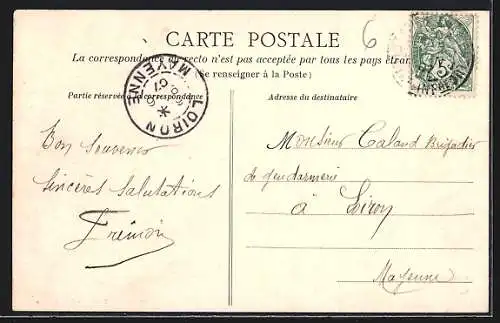 CARTE POSTALE
6
La correspondance au recto n'est pas acceptée par tous les pays étrangers
(Se renseigner à la Poste)
Partie réservée à la correspondance
Adresse du destinataire
LOIRON
MAYENNE
07
Bon Souvenir
Sincères Salutations
Frémon
Monsieur Caland Brigadier
de gendarmerie
à Loiron
Mayenne